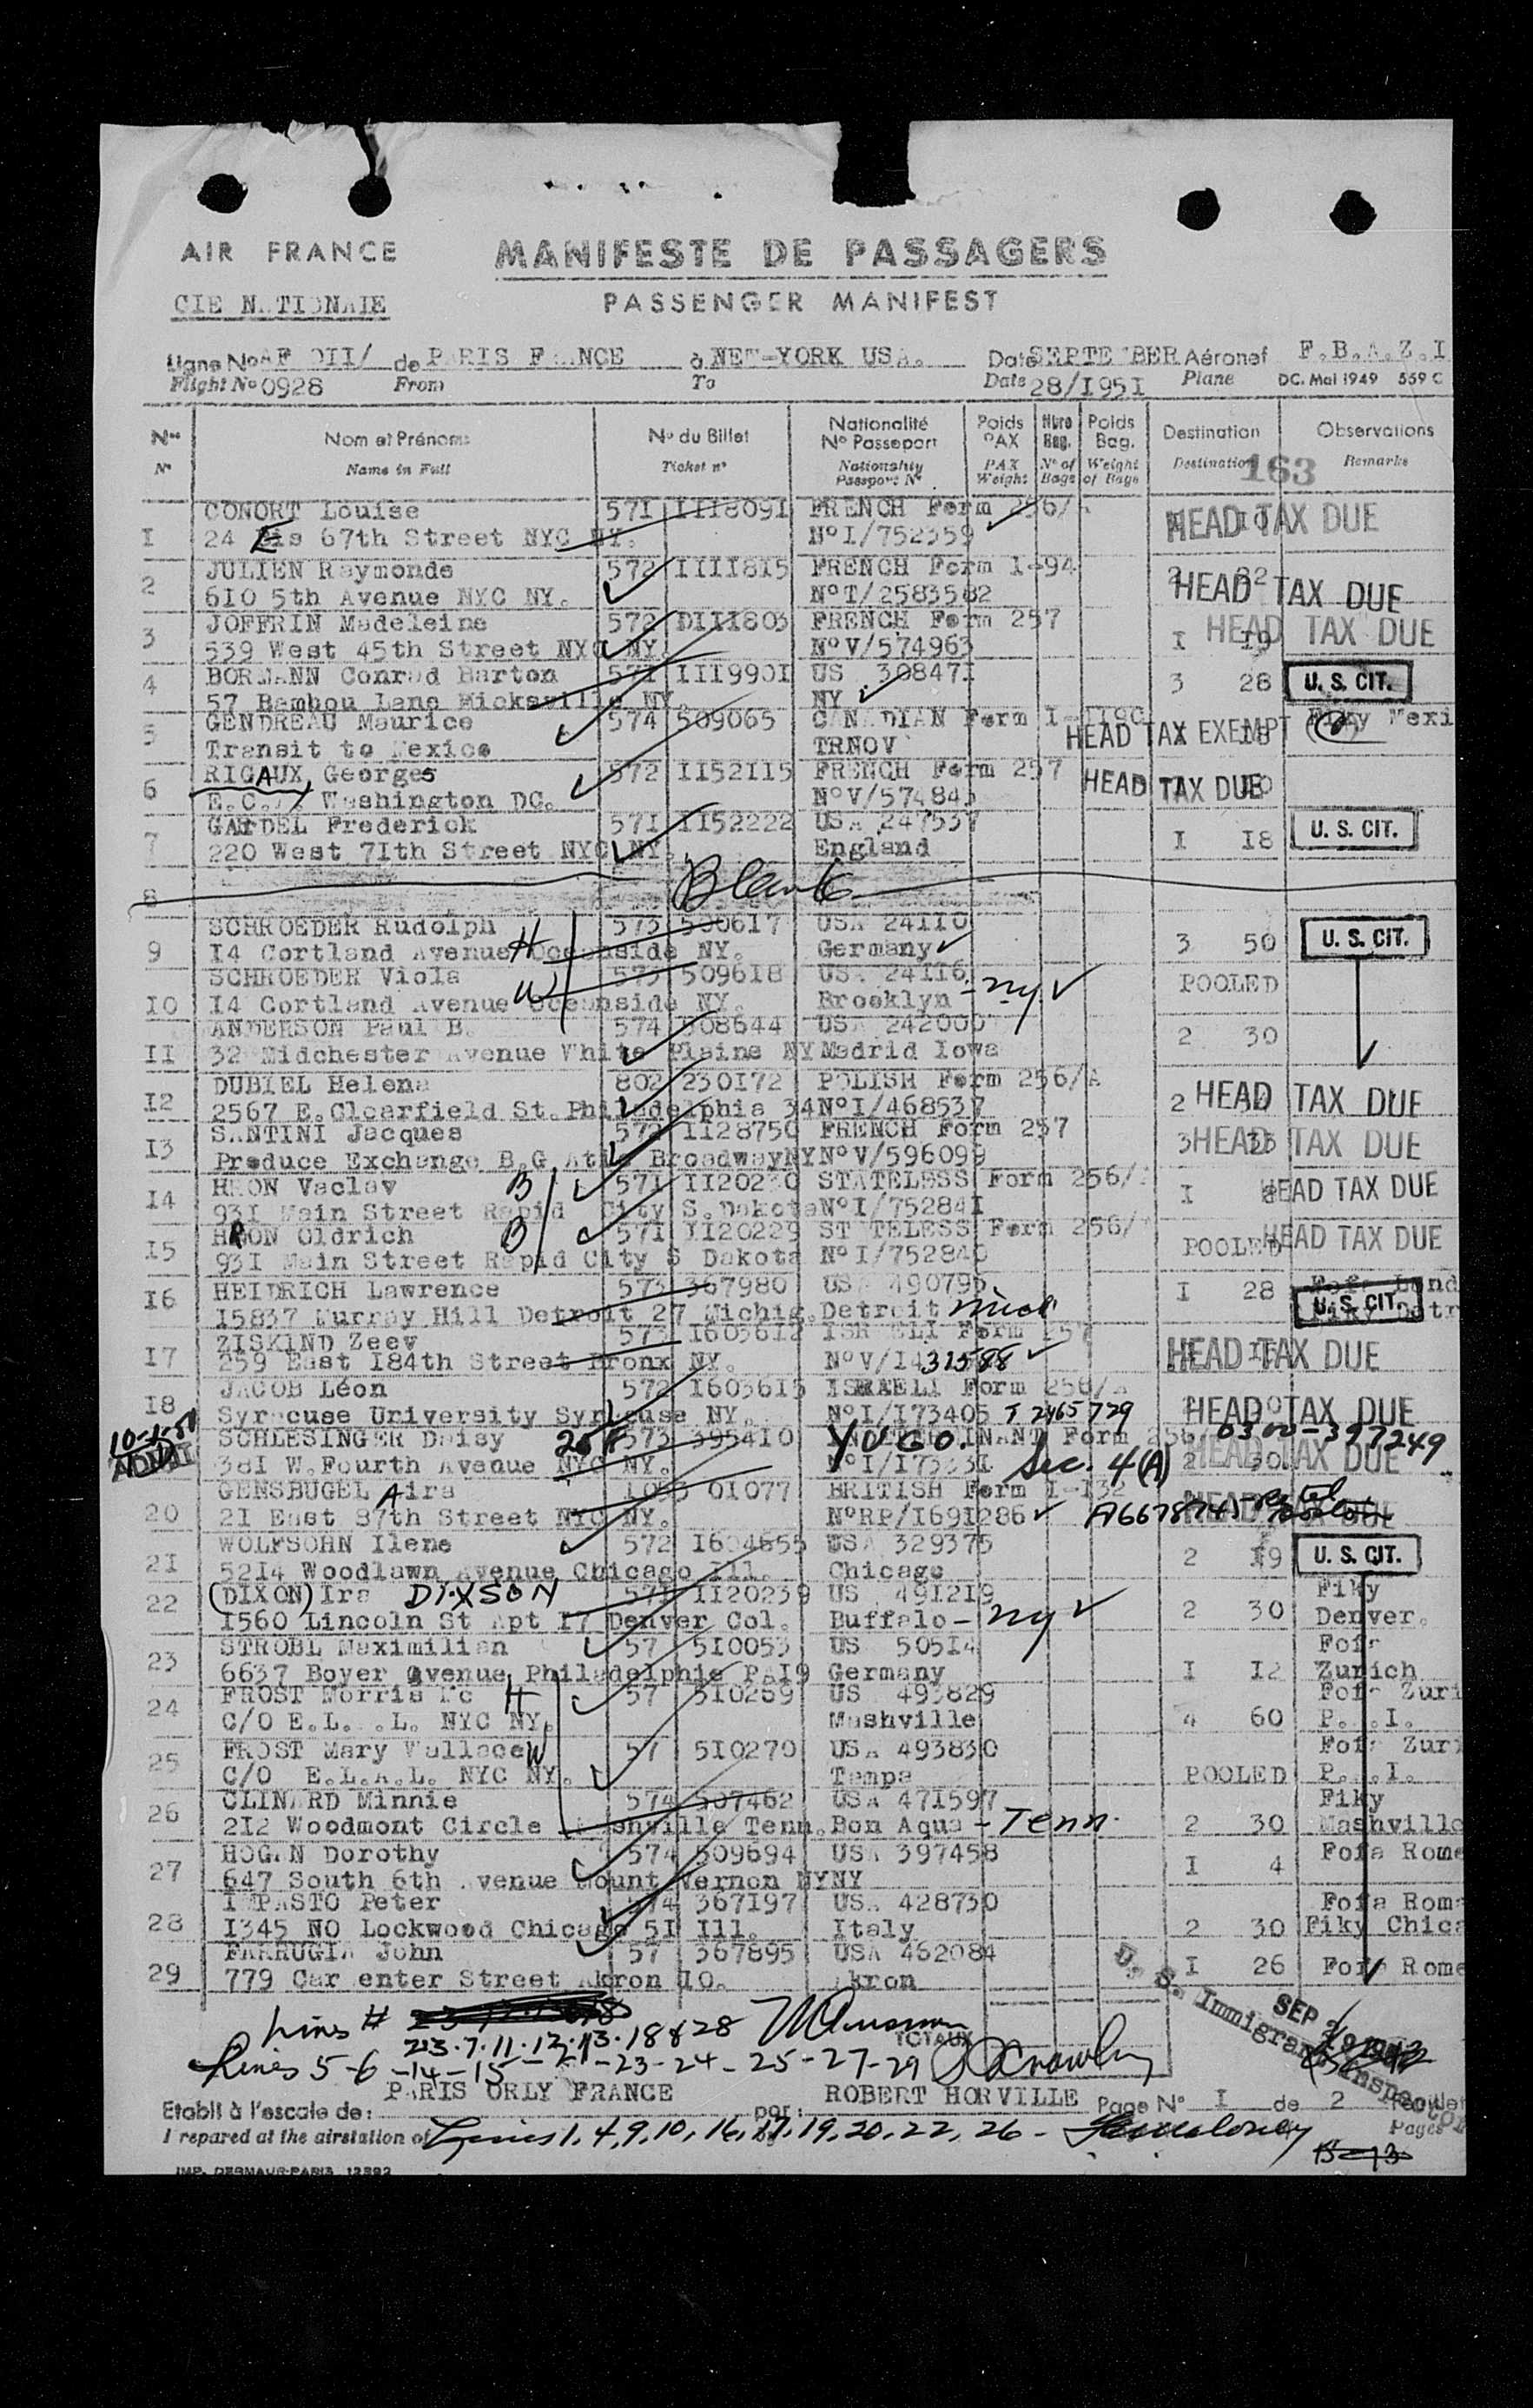 AIR FRANCE
MANIFESTE DE PASSAGERS
CIE NATIONALE
PASSENGER MANIFEST
Ligne No AF 011/ de PARIS FRANCE à NEW-YORK USA. Date SEPTEMBER Aéronef F.B.A.Z.I
Flight No 0928 From To Date 28/I95I Plane DC. Mai 1949 559 C
Nos Nom et Prénoms No du Billet Nationalité No Passeport Poids PAX Nbre Bag. Poids Bag. Destination Observations
No Name in Full Ticket no Nationality Passport No PAX Weight No of Bags Weight of Bags Destination 163 Remarks
CONORT Louise 57I III809I FRENCH Form 256/
I 24 E 67th Street NYC NY. No I/752359 HEAD TAX DUE
JULIEN Raymonde 572 IIII8I5 FRENCH Form I-94
2 6I0 5th Avenue NYC NY. HEAD TAX DUE
JOFFRIN Madeleine 572 FRENCH Form 257 HEAD TAX DUE
3 539 West 45th Street NYC NY. No V/574963 I I9
BORMANN Conrad Barton 57I III990I US 30847I
4 57 NY. NY 3 28 U. S. CIT.
GENDREAU Maurice 574 509065 CANADIAN Form
5 Transit to Mexico TRNOV HEAD TAX EXEMPT I I8 Mexi
RIGAUX, Georges 572 II52II5 FRENCH Form 257
6 Washington DC. No V/57484 HEAD TAX DUE
GARDEL Frederick 57I II52222 USA 247537
7 220 West 7Ith Street NYC NY. England I I8 U. S. CIT.
8 Blank
SCHROEDER Rudolph H 573 5006I7 USA 24II0
9 I4 Cortland Avenue Oceanside NY. Germany 3 50 U. S. CIT.
SCHROEDER Viola W 573 5096I8 USA 24II6
I0 I4 Cortland Avenue Oceanside NY. Brooklyn - NY POOLED
ANDERSON Paul B. 574 508644 USA 242000
II 32 Midchester Avenue White Plains NY Madrid Iowa 2 30
DUBIEL Helena 802 230I72 POLISH Form 256/A
I2 2567 E.Clearfield St.Philadelphia 34 No I/468537 2 HEAD TAX DUE
SANTINI Jacques 572 II28750 FRENCH Form 257
I3 Produce Exchange B.G. Broadway NY No V/596099 3 HEAD TAX DUE
HRON Vaclav B 57I II20230 STATELESS Form 256/
I4 93I Main Street Rapid City S.Dakota No I/75284I I HEAD TAX DUE
HRON Oldrich B 57I II20229 STATELESS Form 256/
I5 93I Main Street Rapid City S Dakota No I/752840 POOLED HEAD TAX DUE
HEIDRICH Lawrence 573 367980 USA 490796
I6 I5837 Murray Hill Detroit 27 Michig. Detroit Mich I 28 U. S. CIT.
ZISKIND Zeev 573 I6036I2 ISRAELI Form 257
I7 259 East I84th Street Bronx NY. No V/I431588 HEAD TAX DUE
JACOB Léon 572 I6036I3 ISRAELI Form 256/A
I8 Syracuse University Syracuse NY. No I/I73405 T 2465729 HEAD TAX DUE
SCHLESINGER Daisy 573 3954I0 YUGO. Form 256 0300-397249
38I W.Fourth Avenue NYC NY. Sec. 4(A) 2 HEAD TAX DUE
GENSBUGEL Aira 0I077 BRITISH Form I-I32
20 2I East 87th Street NYC NY. No RP/I69I286
WOLFSOHN Ilene 572 I604655 USA 329375
2I 52I4 Woodlawn Avenue Chicago Ill. Chicago 2 I9 U. S. CIT.
(DIXON) Ira DIXSON 57I II20239 US 49I2I9 Fiky
22 I560 Lincoln St Apt I7 Denver Col. Buffalo - NY 2 30 Denver.
STROBL Maximilian 57 5I0053 US 505I4 Fofa
23 6637 Boyer Avenue Philadelphie PAI9 Germany I I2 Zurich
FROST Morris Mc H 57 5I0269 US 493829 Fofa Zuri
24 NYC NY. Nashville 4 60
FROST Mary Wallace W 57 5I0270 USA 493830 Fofa Zuri
25 C/O E.L.A.L. NYC NY. Tampa POOLED
CLINARD Minnie 574 507462 USA 47I597 Fiky
26 2I2 Woodmont Circle Nashville Tenn. Bon Aqua - Tenn. 2 30 Nashville
HOGAN Dorothy 574 509694 USA 397458
27 647 South 6th Avenue Mount Vernon NY NY I 4 Fofa Rome
IMPASTO Peter 574 367I97 USA 428730 Fofa Roma
28 I345 NO Lockwood Chicago 5I Ill. Italy 2 30 Fiky Chica
FARRUGIA John 57 367895 USA 462084
29 779 Carpenter Street Akron Akron I 26 Fofa Rome
Lines #
2.3.7.11.12.13.18 & 28
TOTAUX
U. S. Immigrant Inspector
SEP 29
Lines 5-6-14-15-21-23-24-25-27-29
PARIS ORLY FRANCE ROBERT HORVILLE
Etabli à l'escale de: par: Page No I de 2
Prepared at the airstation of Lines 1,4,9,10,16,17,19,20,22,26 - Pages
IMP. DESHAUX-PARIS